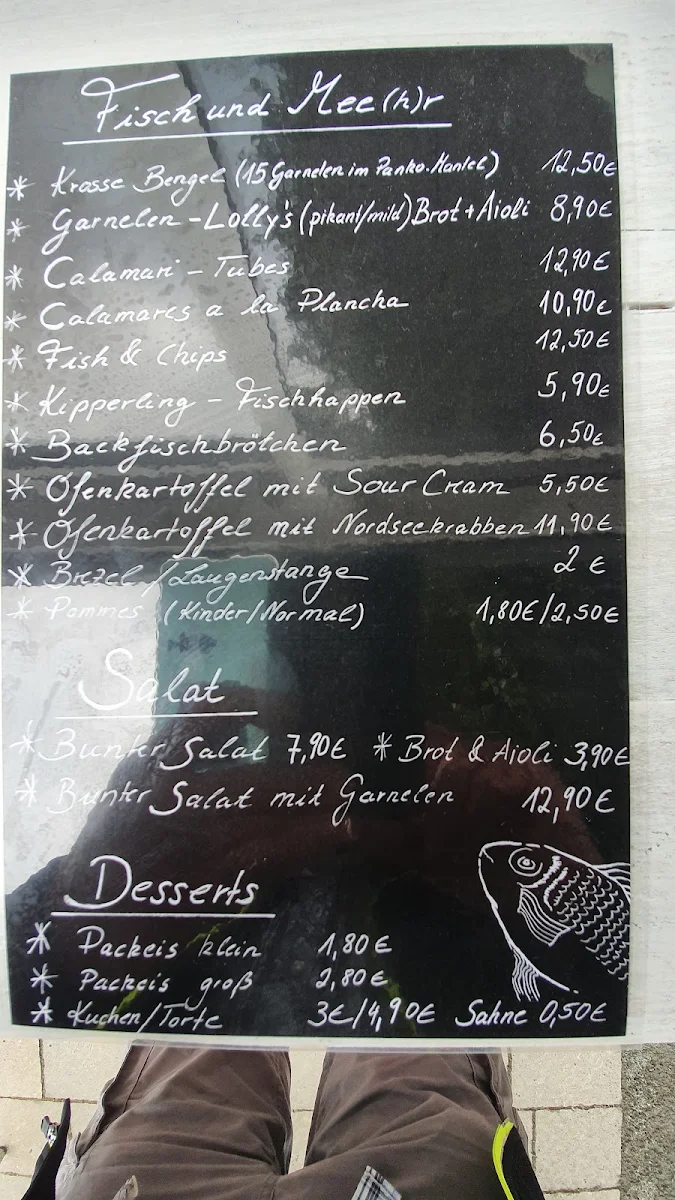 Fisch und Mee(h)r
* Krasse Bengel (15 Garnelen im Panko-Mantel) 12,50€
* Garnelen-Lolly's (pikant/mild) Brot + Aioli 8,90€
* Calamari-Tubes 12,90€
* Calamares a la Plancha 10,90€
* Fish & Chips 12,50€
* Kipperling - Fischhappen 5,90€
* Backfischbrötchen 6,50€
* Ofenkartoffel mit Sour Cream 5,50€
* Ofenkartoffel mit Nordseekrabben 11,90€
* Brezel/Laugenstange 2 €
* Pommes (Kinder/Normal) 1,80€/2,50€
Salat
* Bunter Salat 7,90€ * Brot & Aioli 3,90€
* Bunter Salat mit Garnelen 12,90€
Desserts
* Packeis klein 1,80€
* Packeis groß 2,80€
* Kuchen/Torte 3€/4,90€ Sahne 0,50€